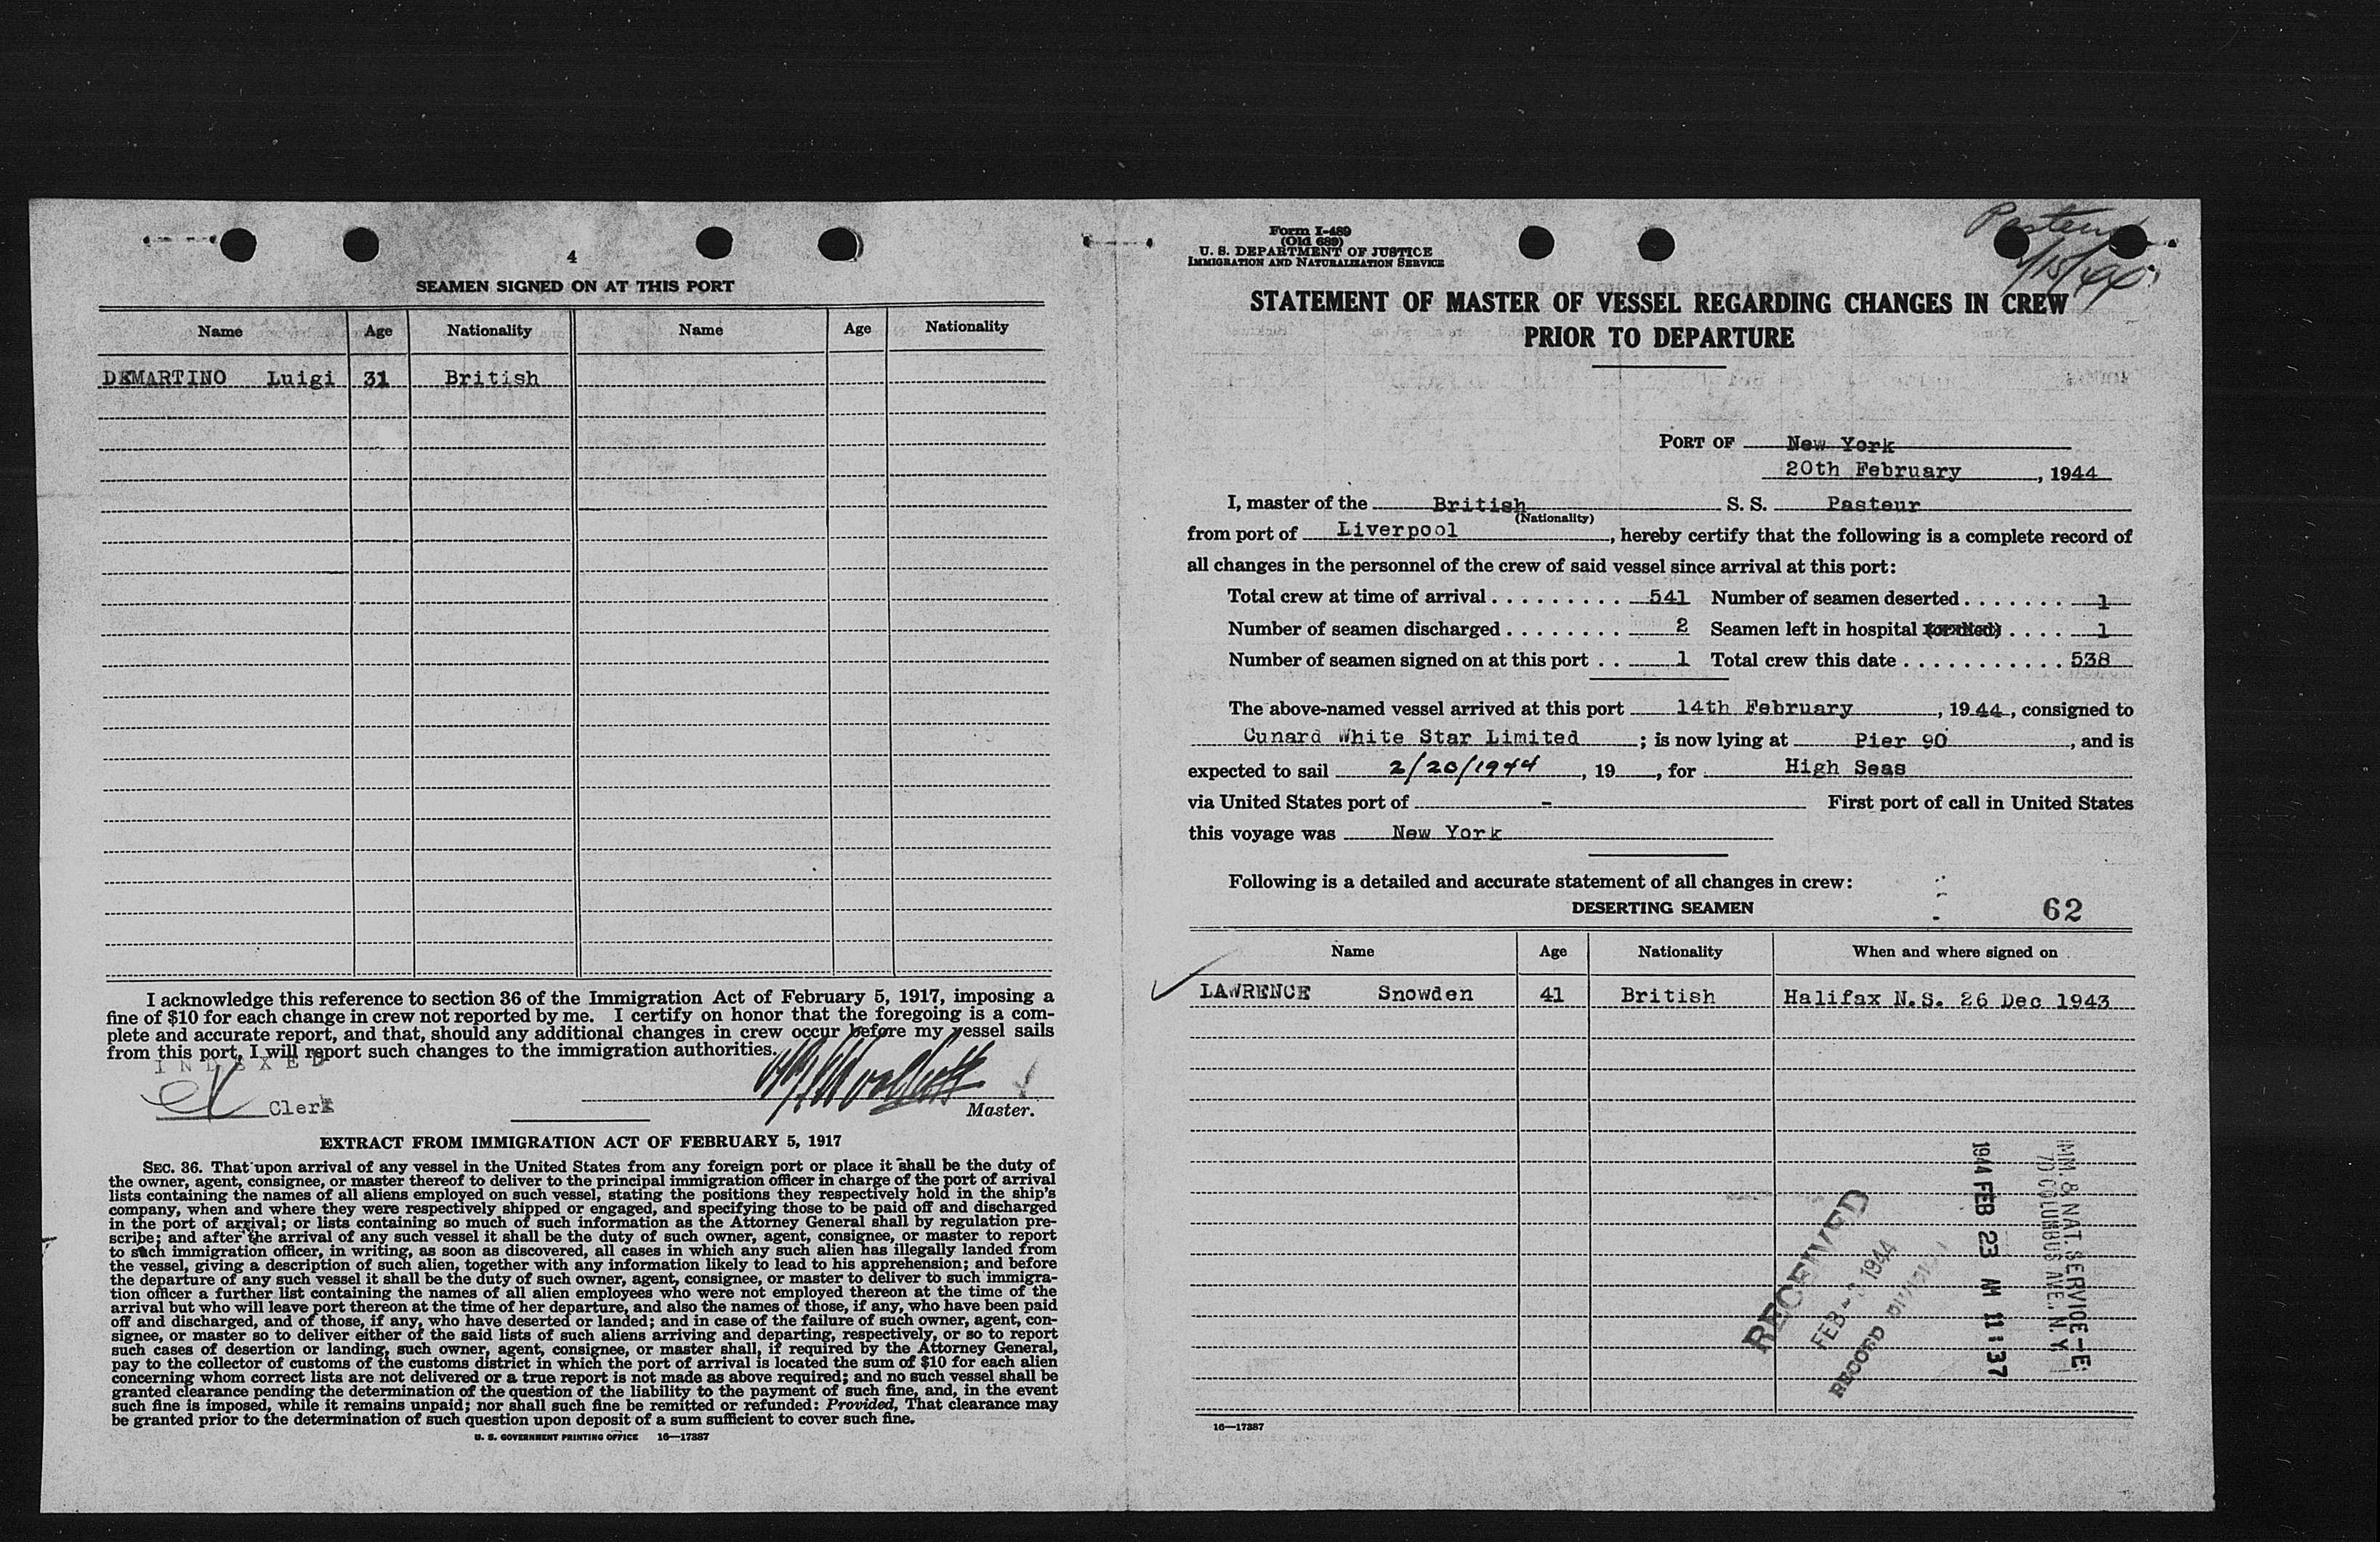 4
SEAMEN SIGNED ON AT THIS PORT
Name Age Nationality Name Age Nationality
DEMARTINO Luigi 31 British
I acknowledge this reference to section 36 of the Immigration Act of February 5, 1917, imposing a
fine of $10 for each change in crew not reported by me. I certify on honor that the foregoing is a com-
plete and accurate report, and that, should any additional changes in crew occur before my vessel sails
from this port, I will report such changes to the immigration authorities.
INDEXED
Clerk
Master.
EXTRACT FROM IMMIGRATION ACT OF FEBRUARY 5, 1917
SEC. 36. That upon arrival of any vessel in the United States from any foreign port or place it shall be the duty of
the owner, agent, consignee, or master thereof to deliver to the principal immigration officer in charge of the port of arrival
lists containing the names of all aliens employed on such vessel, stating the positions they respectively hold in the ship's
company, when and where they were respectively shipped or engaged, and specifying those to be paid off and discharged
in the port of arrival; or lists containing so much of such information as the Attorney General shall by regulation pre-
scribe; and after the arrival of any such vessel it shall be the duty of such owner, agent, consignee, or master to report
to such immigration officer, in writing, as soon as discovered, all cases in which any such alien has illegally landed from
the vessel, giving a description of such alien, together with any information likely to lead to his apprehension; and before
the departure of any such vessel it shall be the duty of such owner, agent, consignee, or master to deliver to such immigra-
tion officer a further list containing the names of all alien employees who were not employed thereon at the time of the
arrival but who will leave port thereon at the time of her departure, and also the names of those, if any, who have been paid
off and discharged, and of those, if any, who have deserted or landed; and in case of the failure of such owner, agent, con-
signee, or master so to deliver either of the said lists of such aliens arriving and departing, respectively, or so to report
such cases of desertion or landing, such owner, agent, consignee, or master shall, if required by the Attorney General,
pay to the collector of customs of the customs district in which the port of arrival is located the sum of $10 for each alien
concerning whom correct lists are not delivered or a true report is not made as above required; and no such vessel shall be
granted clearance pending the determination of the question of the liability to the payment of such fine, and, in the event
such fine is imposed, while it remains unpaid; nor shall such fine be remitted or refunded: Provided, That clearance may
be granted prior to the determination of such question upon deposit of a sum sufficient to cover such fine.
U. S. GOVERNMENT PRINTING OFFICE 16—17387
Form I-489
(Old 689)
U. S. DEPARTMENT OF JUSTICE
IMMIGRATION AND NATURALIZATION SERVICE
Pasteur
STATEMENT OF MASTER OF VESSEL REGARDING CHANGES IN CREW
PRIOR TO DEPARTURE
PORT OF New York
20th February, 1944
I, master of the British S. S. Pasteur
(Nationality)
from port of Liverpool, hereby certify that the following is a complete record of
all changes in the personnel of the crew of said vessel since arrival at this port:
Total crew at time of arrival . . . . . . . . . 541 Number of seamen deserted . . . . . . . 1
Number of seamen discharged . . . . . . . . 2 Seamen left in hospital (or died) . . . . 1
Number of seamen signed on at this port . . 1 Total crew this date . . . . . . . . . . . 538
The above-named vessel arrived at this port 14th February, 1944, consigned to
Cunard White Star Limited; is now lying at Pier 90, and is
expected to sail 2/20/1944, 19, for High Seas
via United States port of - First port of call in United States
this voyage was New York
Following is a detailed and accurate statement of all changes in crew:
DESERTING SEAMEN 62
Name Age Nationality When and where signed on
LAWRENCE Snowden 41 British Halifax N.S. 26 Dec 1943
RECEIVED
FEB 1944
RECORD DIVISION
1944 FEB 23 AM 11:37
IMM. & NAT. SERVICE—E
70 COLUMBUS AVE., N.Y.
16—17387